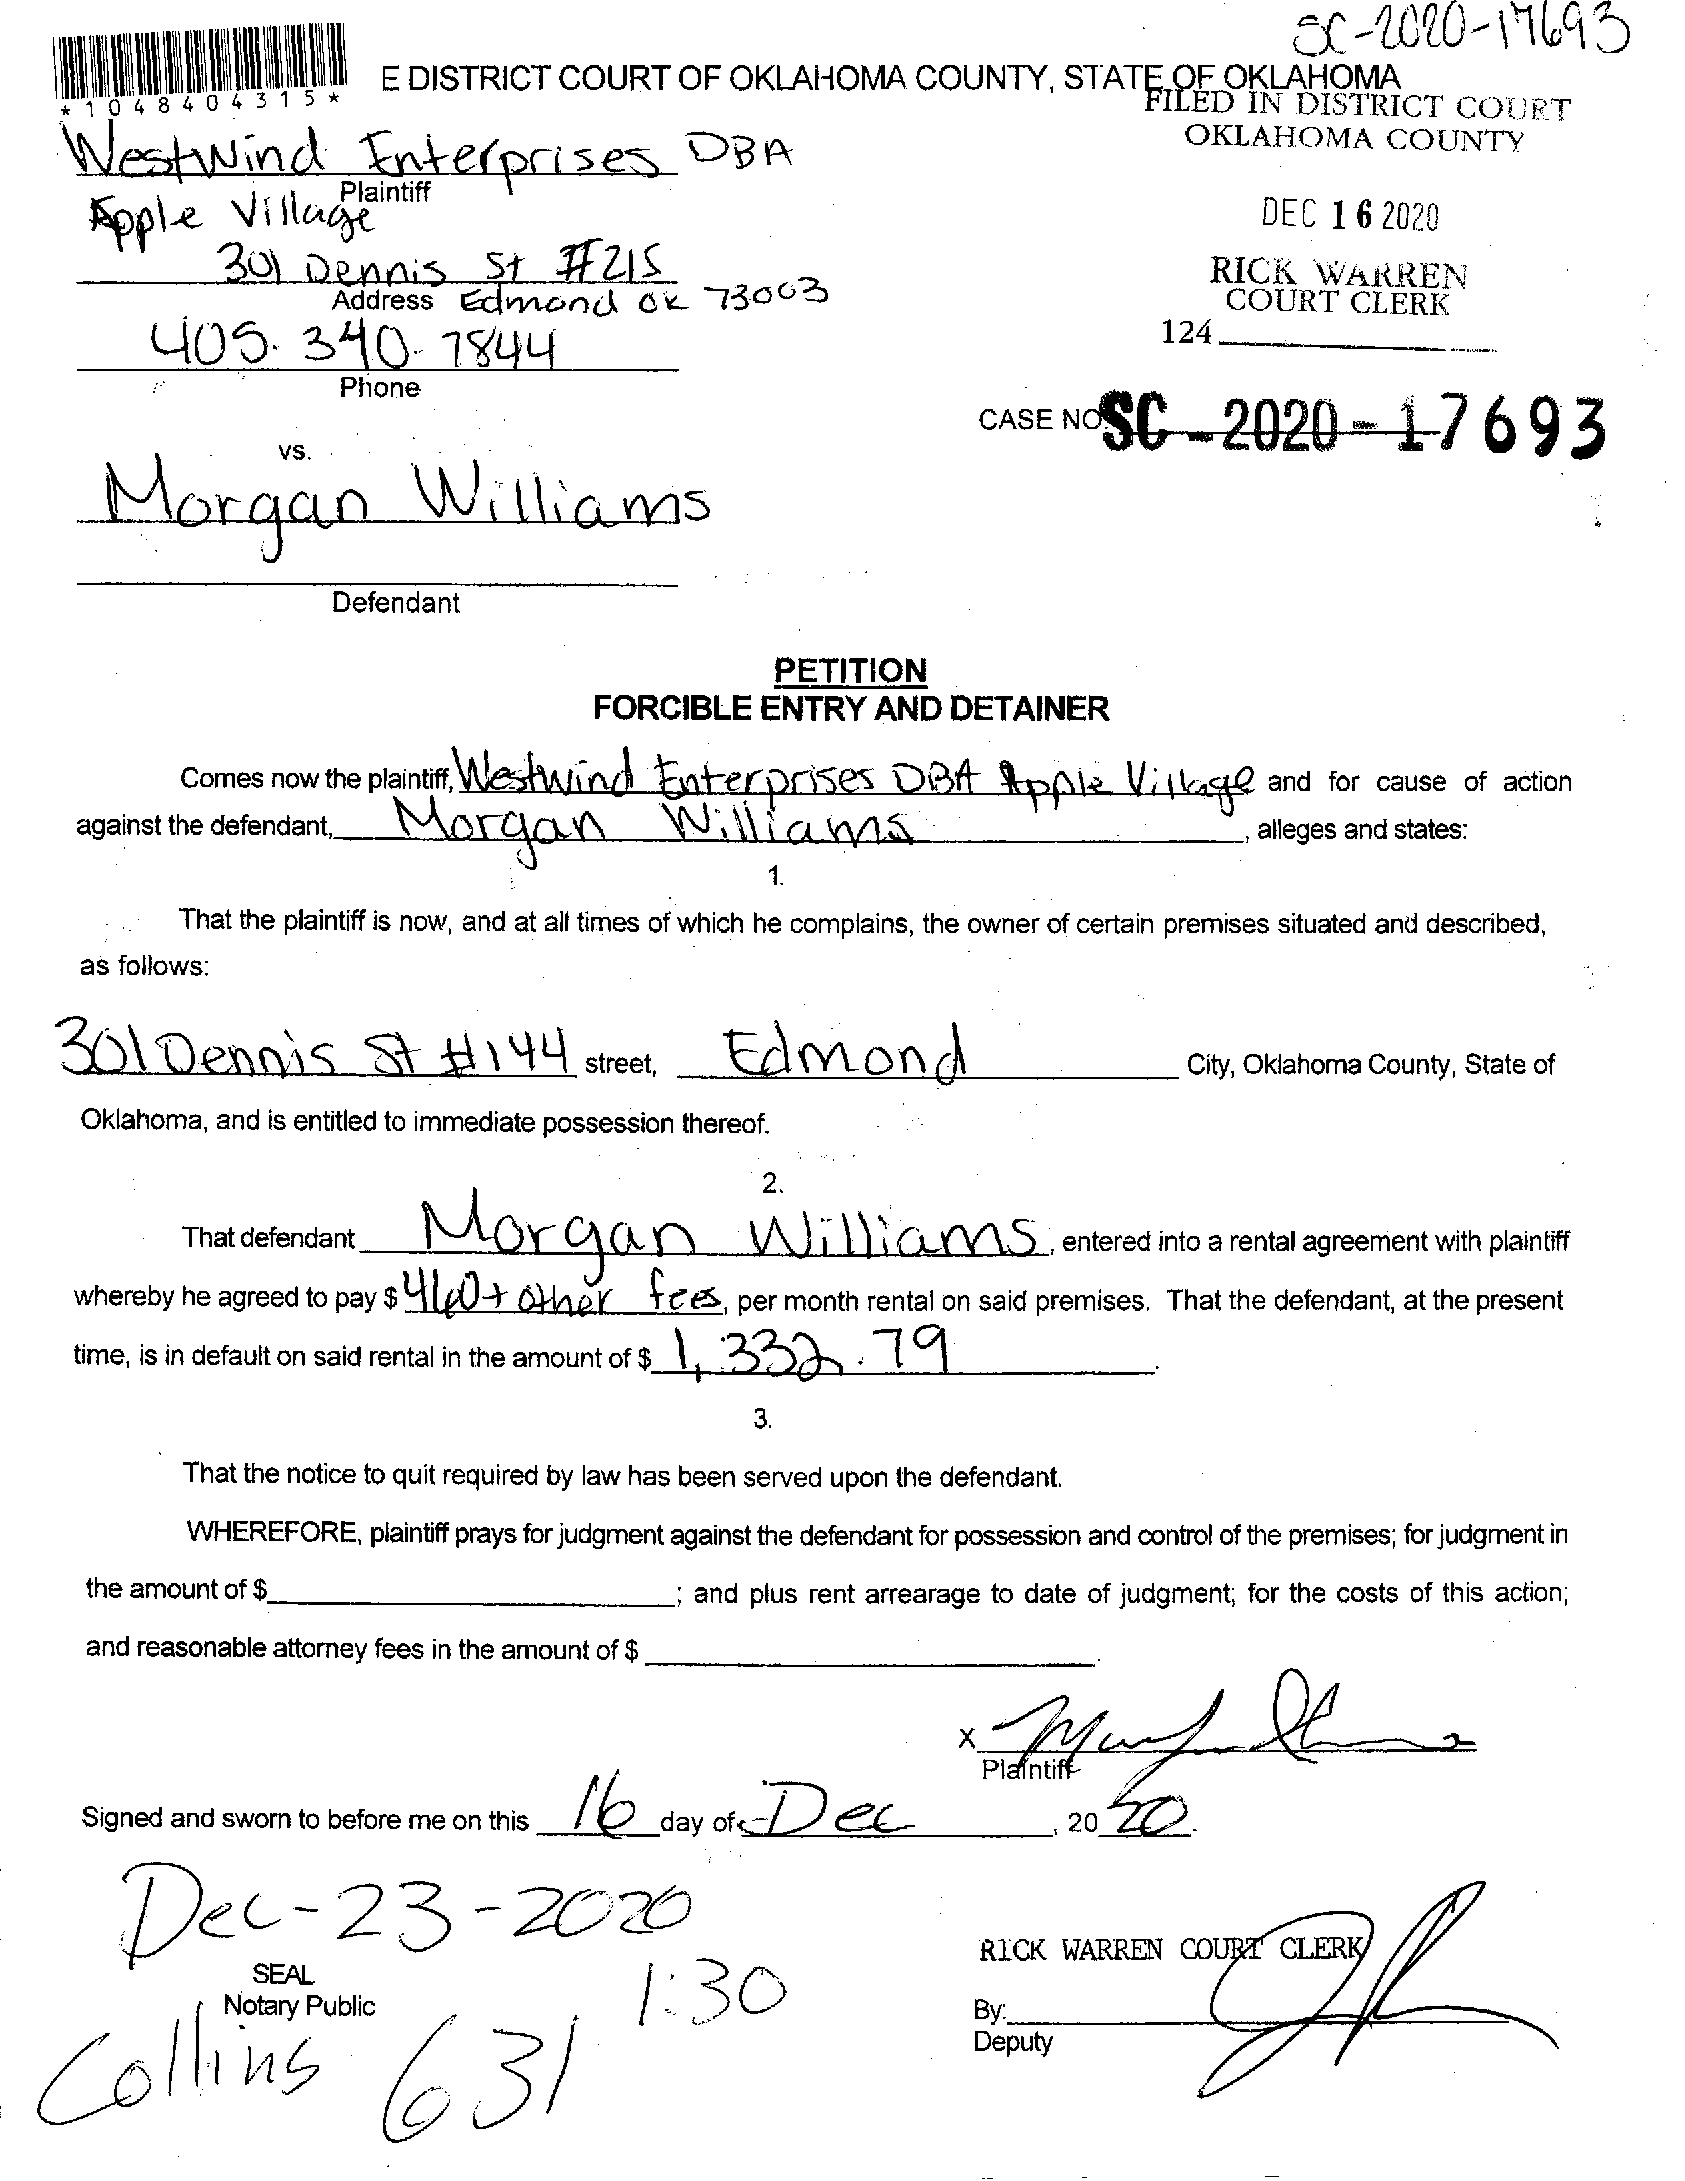 SC-2020-17693
*1048404315*
E DISTRICT COURT OF OKLAHOMA COUNTY, STATE OF OKLAHOMA
FILED IN DISTRICT COURT
OKLAHOMA COUNTY
DEC 16 2020
RICK WARREN
COURT CLERK
124
Westwind Enterprises DBA
Plaintiff
Apple Village
301 Dennis St #215
Address Edmond OK 73003
405-340-7844
Phone
CASE NO SC-2020-17693
vs.
Morgan Williams
Defendant
PETITION
FORCIBLE ENTRY AND DETAINER
Comes now the plaintiff, Westwind Enterprises DBA Apple Village and for cause of action
against the defendant, Morgan Williams, alleges and states:
1.
That the plaintiff is now, and at all times of which he complains, the owner of certain premises situated and described,
as follows:
301 Dennis St #144 street, Edmond City, Oklahoma County, State of
Oklahoma, and is entitled to immediate possession thereof.
2.
That defendant Morgan Williams, entered into a rental agreement with plaintiff
whereby he agreed to pay $ 460 + other fees, per month rental on said premises. That the defendant, at the present
time, is in default on said rental in the amount of $ 1,332.79.
3.
That the notice to quit required by law has been served upon the defendant.
WHEREFORE, plaintiff prays for judgment against the defendant for possession and control of the premises; for judgment in
the amount of $ ; and plus rent arrearage to date of judgment; for the costs of this action;
and reasonable attorney fees in the amount of $ .
X
Plaintiff
Signed and sworn to before me on this 16 day of Dec, 2020.
Dec-23-2020
SEAL
1:30
Notary Public
Collins 631
RICK WARREN COURT CLERK
By:
Deputy